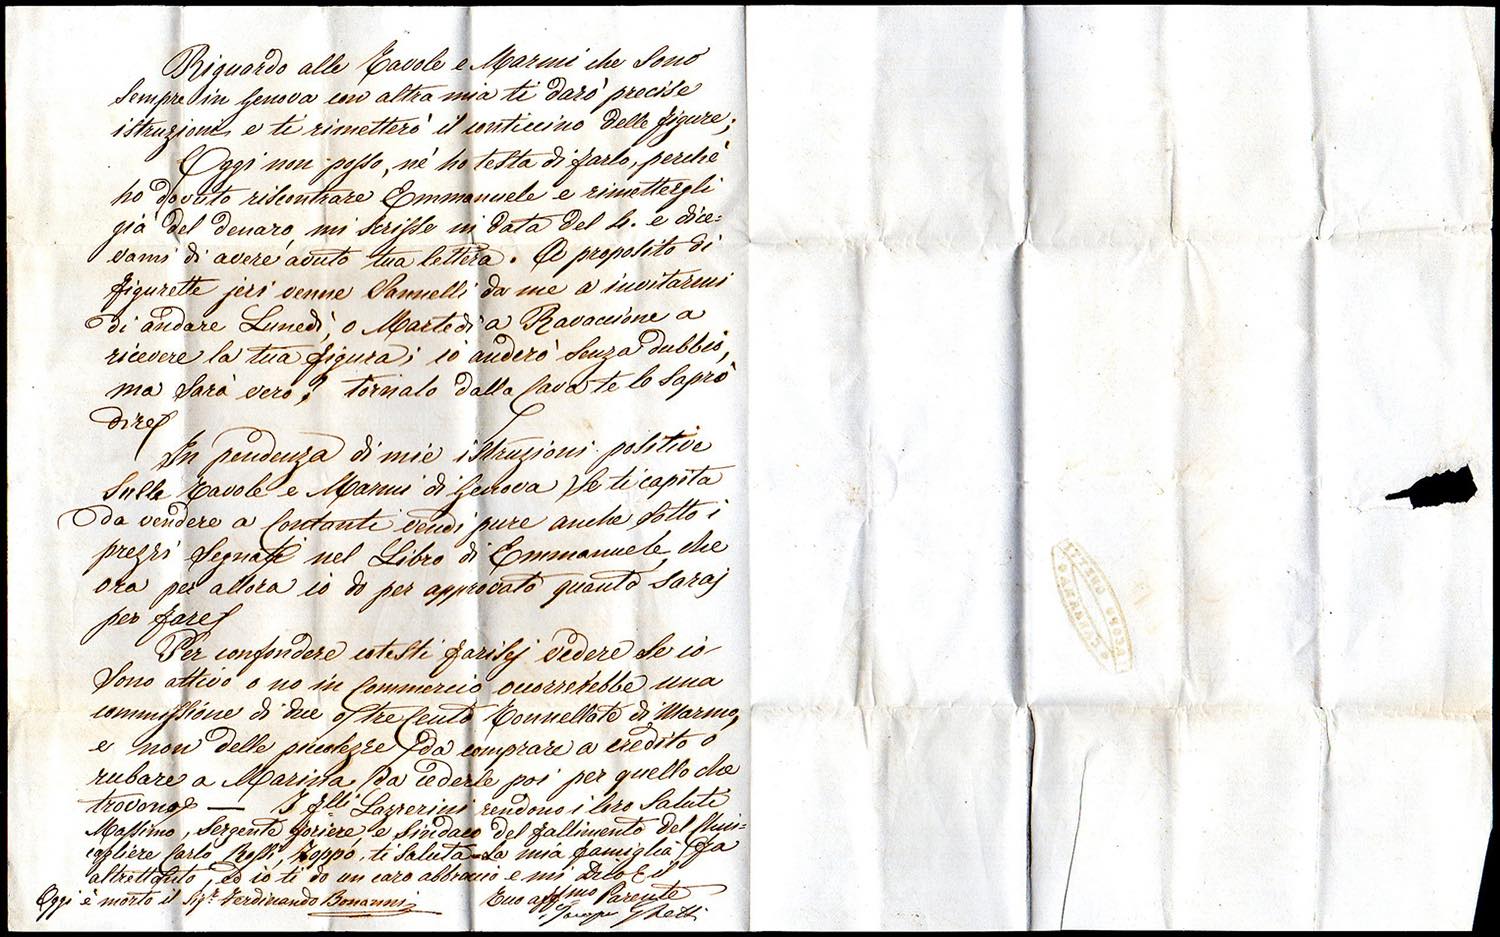 Riguardo alle Tavole e Marmi che sono
sempre in Genova con altra mia ti darò precise
istruzioni e ti rimetterò il conticino delle figure;
Oggi non posso, nè ho testa di farlo, perchè
ho dovuto riscontrare Emmanuele e rimettergli
già del denaro mi scrisse in data del 4. e dice-
vami di avere avuto tua lettera. A proposito di
figurette jeri venne Sannelli da me a invitarmi
di andare Lunedì, o Martedì a Ravaccione a
ricevere la tua figura; io anderò senza dubbio,
ma sarà vero? tornato dalla Cava te lo saprò
dire
In pendenza di mie istruzioni positive
sulle Tavole e Marmi di Genova se ti capita
da vendere a Contanti vendi pure anche sotto i
prezzi segnati nel Libro di Emmanuele, che
ora per allora io do per approvato quanto saraj
per fare
Per confondere cotesti farisej vedere se io
sono attivo o no in Commercio occorrerebbe una
commissione di due o tre Cento Tonnellate di Marmo,
e non delle piccolezze da comprare a credito o
rubare a Marina da cederle poi per quello che
trovono — I flli Lazzerini rendono i loro saluti
Massimo, Sergente foriere e Sindaco del fallimento del
Carlo Rossi, Zoppo, ti saluta la mia famiglia fa
altrettanto, ed io ti do un caro abbraccio e mi dico E il
Oggi è morto il Sigr Ferdinando Bonanni Tuo affmo Parente
Ghetti